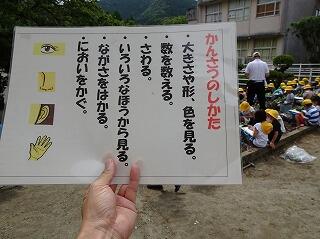 かんさつのしかた
・大きさや形、色を見る。
・数を数える。
・さわる。
・いろいろなほうから見る。
・ながさをはかる。
・においをかぐ。